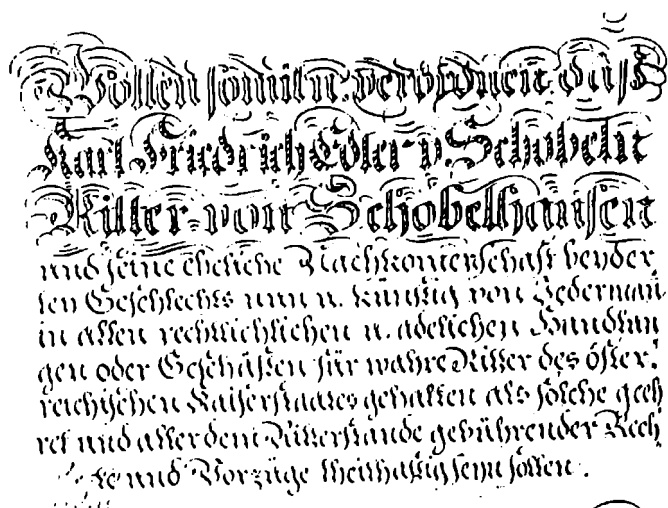 Wollen somit u. verordnen daß
Karl Friedrich Edler v. Schobeln
Ritter von Schobelhausen
und seine eheliche Nachkomenschaft beyder
ley Geschlechts nun u. künftig von Jederman
in allen rechtlichlichen u. adelichen Handlun
gen oder Geschäften für wahre Ritter des öster
reichischen Kaiserstaates gehalten als solche geeh
ret und aller dem Ritterstande gebührender Rech
te und Vorzüge theilhaftig seyn sollen.